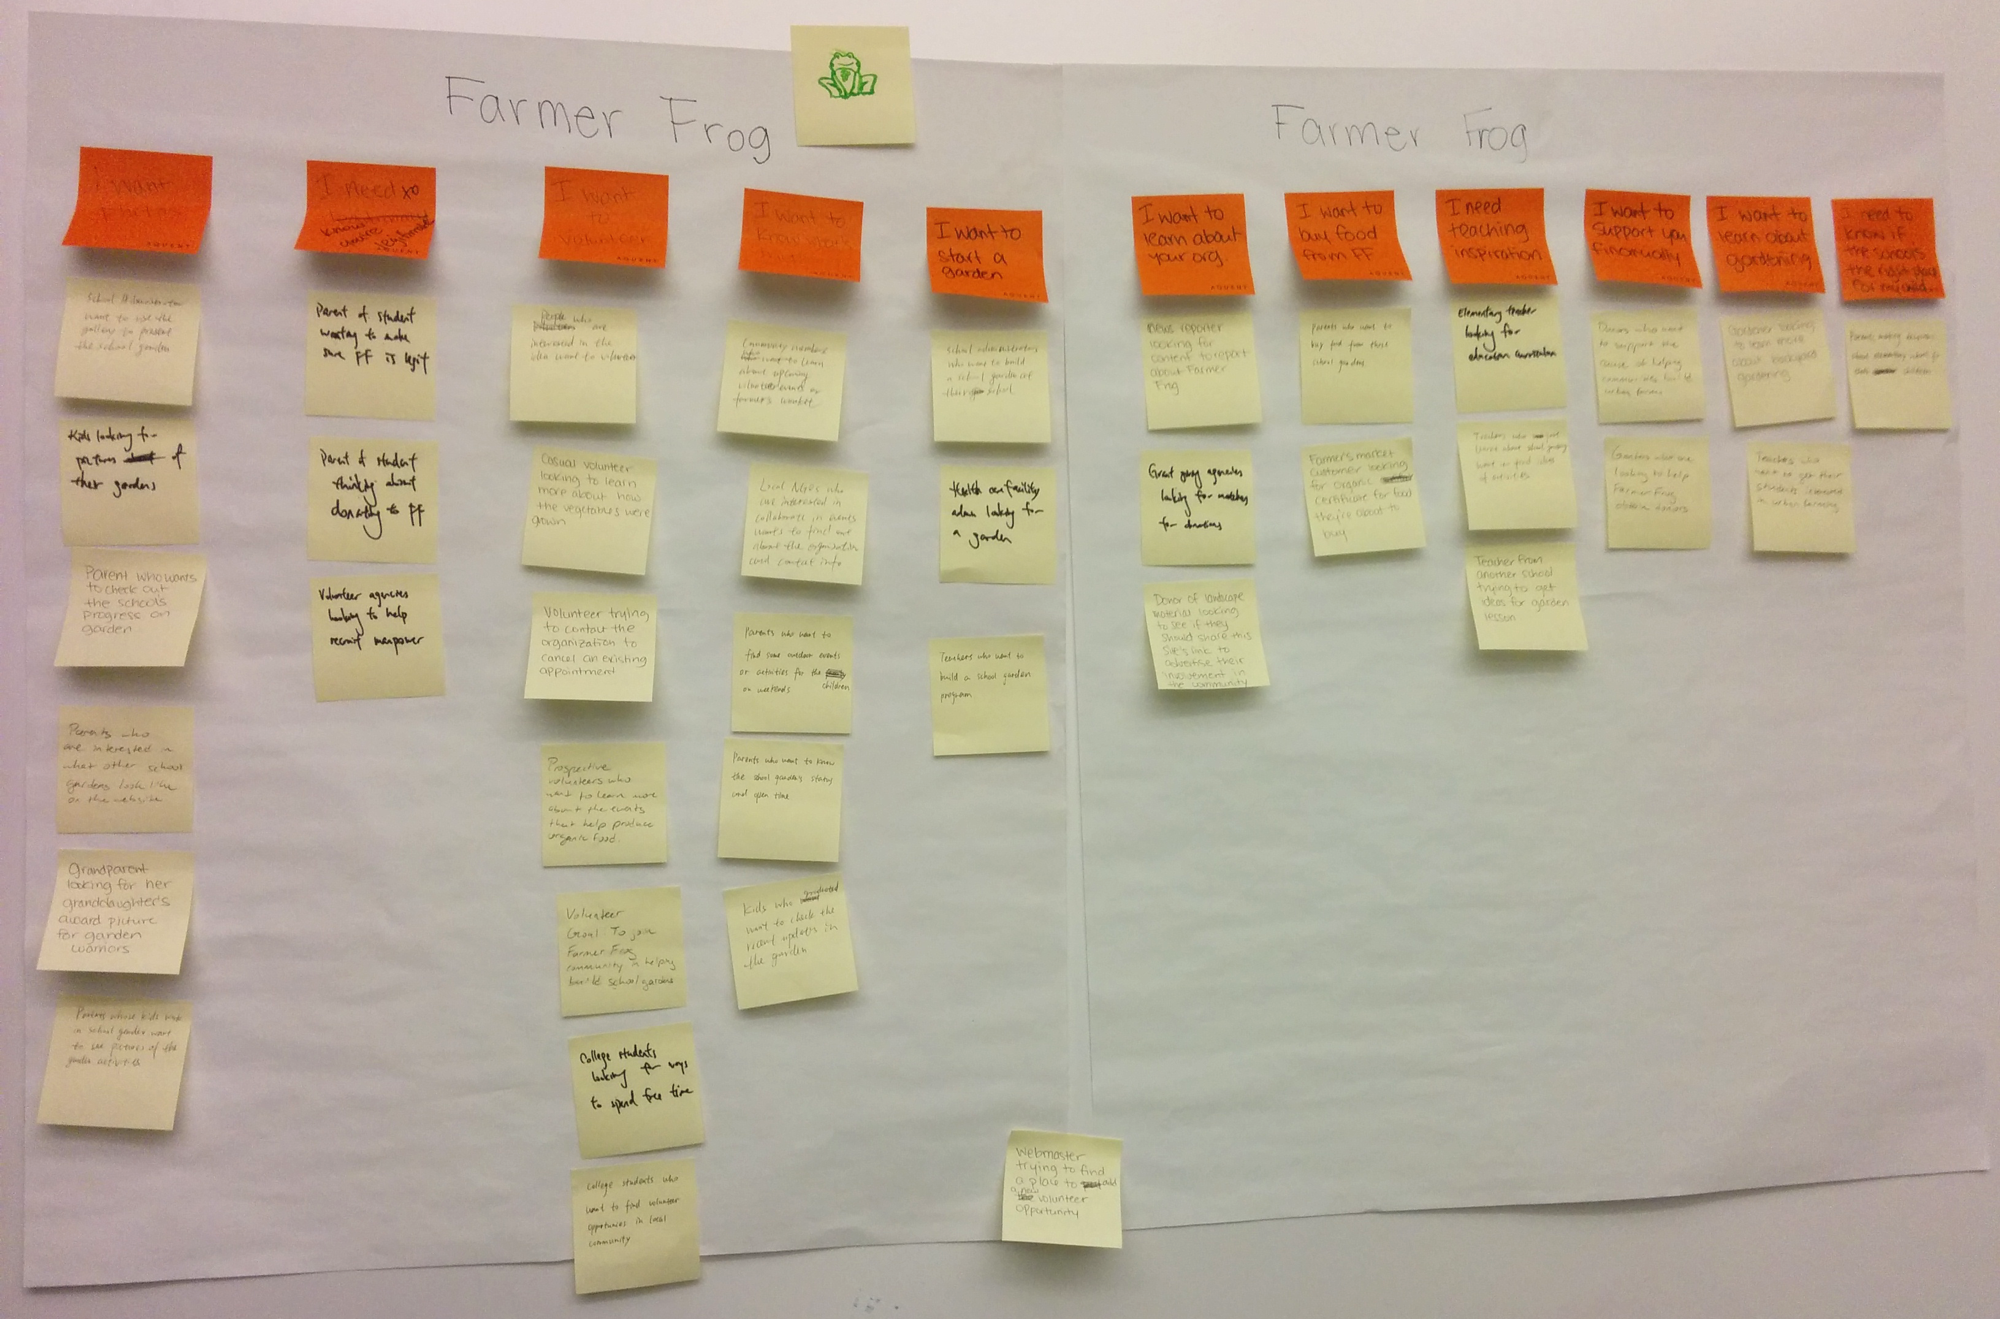 Farmer Frog
Farmer Frog
I want
photos
AQUENT
School Administrator
want to use the
gallery to present
the school garden
Kids looking for
pictures of
their gardens
Parent who wants
to check out
the school's
progress on
garden
Parents who
are interested in
what other school
gardens look like
on the website
Grandparent
looking for her
granddaughter's
award picture
for garden
warriors
Parents whose kids
in school garden want
to see pictures of the
garden activities
I need to
know
you're legitimate
AQUENT
Parent of student
wanting to make
sure FF is legit
Parent of student
thinking about
donating to FF
Volunteer agencies
looking to help
recruit manpower
I want
to
volunteer
AQUENT
People who
are
interested in the
idea want to volunteer
Casual volunteer
looking to learn
more about how
the vegetables were
grown
Volunteer trying
to contact the
organization to
cancel an existing
appointment
Prospective
volunteers who
want to learn more
about the events
that help produce
organic food.
Volunteer
Goal: To join
Farmer Frog
community in helping
build school gardens
College students
looking for ways
to spend free time
College students who
want to find volunteer
opportunities in local
community
I want to
know
AQUENT
Community members
who want to learn
about upcoming
volunteer events or
farmer's market
Local NGOs who
are interested in
collaborate in events
wants to find out
about the organization
and contact info
Parents who want to
find some outdoor events
or activities for the
on weekends children
Parents who want to know
the school garden's status
and open time
Kids who graduated
want to check the
recent updates in
the garden
I want to
start a
garden
AQUENT
School administrators
who want to build
a school garden at
their school
Health care facility
admin looking for
a garden
Teachers who want to
build a school garden
program
I want to
learn about
your org.
AQUENT
News reporter
looking for
content to report
about Farmer
Frog
Grant giving agencies
looking for matches
for donations
Donor of landscape
material looking
to see if they
should share this
site's link to
advertise their
involvement in
the community
I want to
buy food
from FF
AQUENT
Parents who want to
buy food from their
school gardens
Farmer's market
customer looking
for organic
certificate for food
they're about to
buy
I need
teaching
inspiration
AQUENT
Elementary teacher
looking for
education curriculum
Teachers who
Teacher from
another school
trying to get
ideas for garden
lesson
I want to
support you
financially
AQUENT
Donors who want
to support the
cause of helping
communities build
urban farms
Grantors who are
looking to help
Farmer Frog
obtain donors
I want to
learn about
gardening
AQUENT
Gardener looking
to learn more
about backyard
gardening
Teachers who
want to get their
students interested
in urban farming
I need to
know if
the school's
the right place
for my child..
Parents
children
Webmaster
trying to find
a place to add
a new
volunteer
opportunity